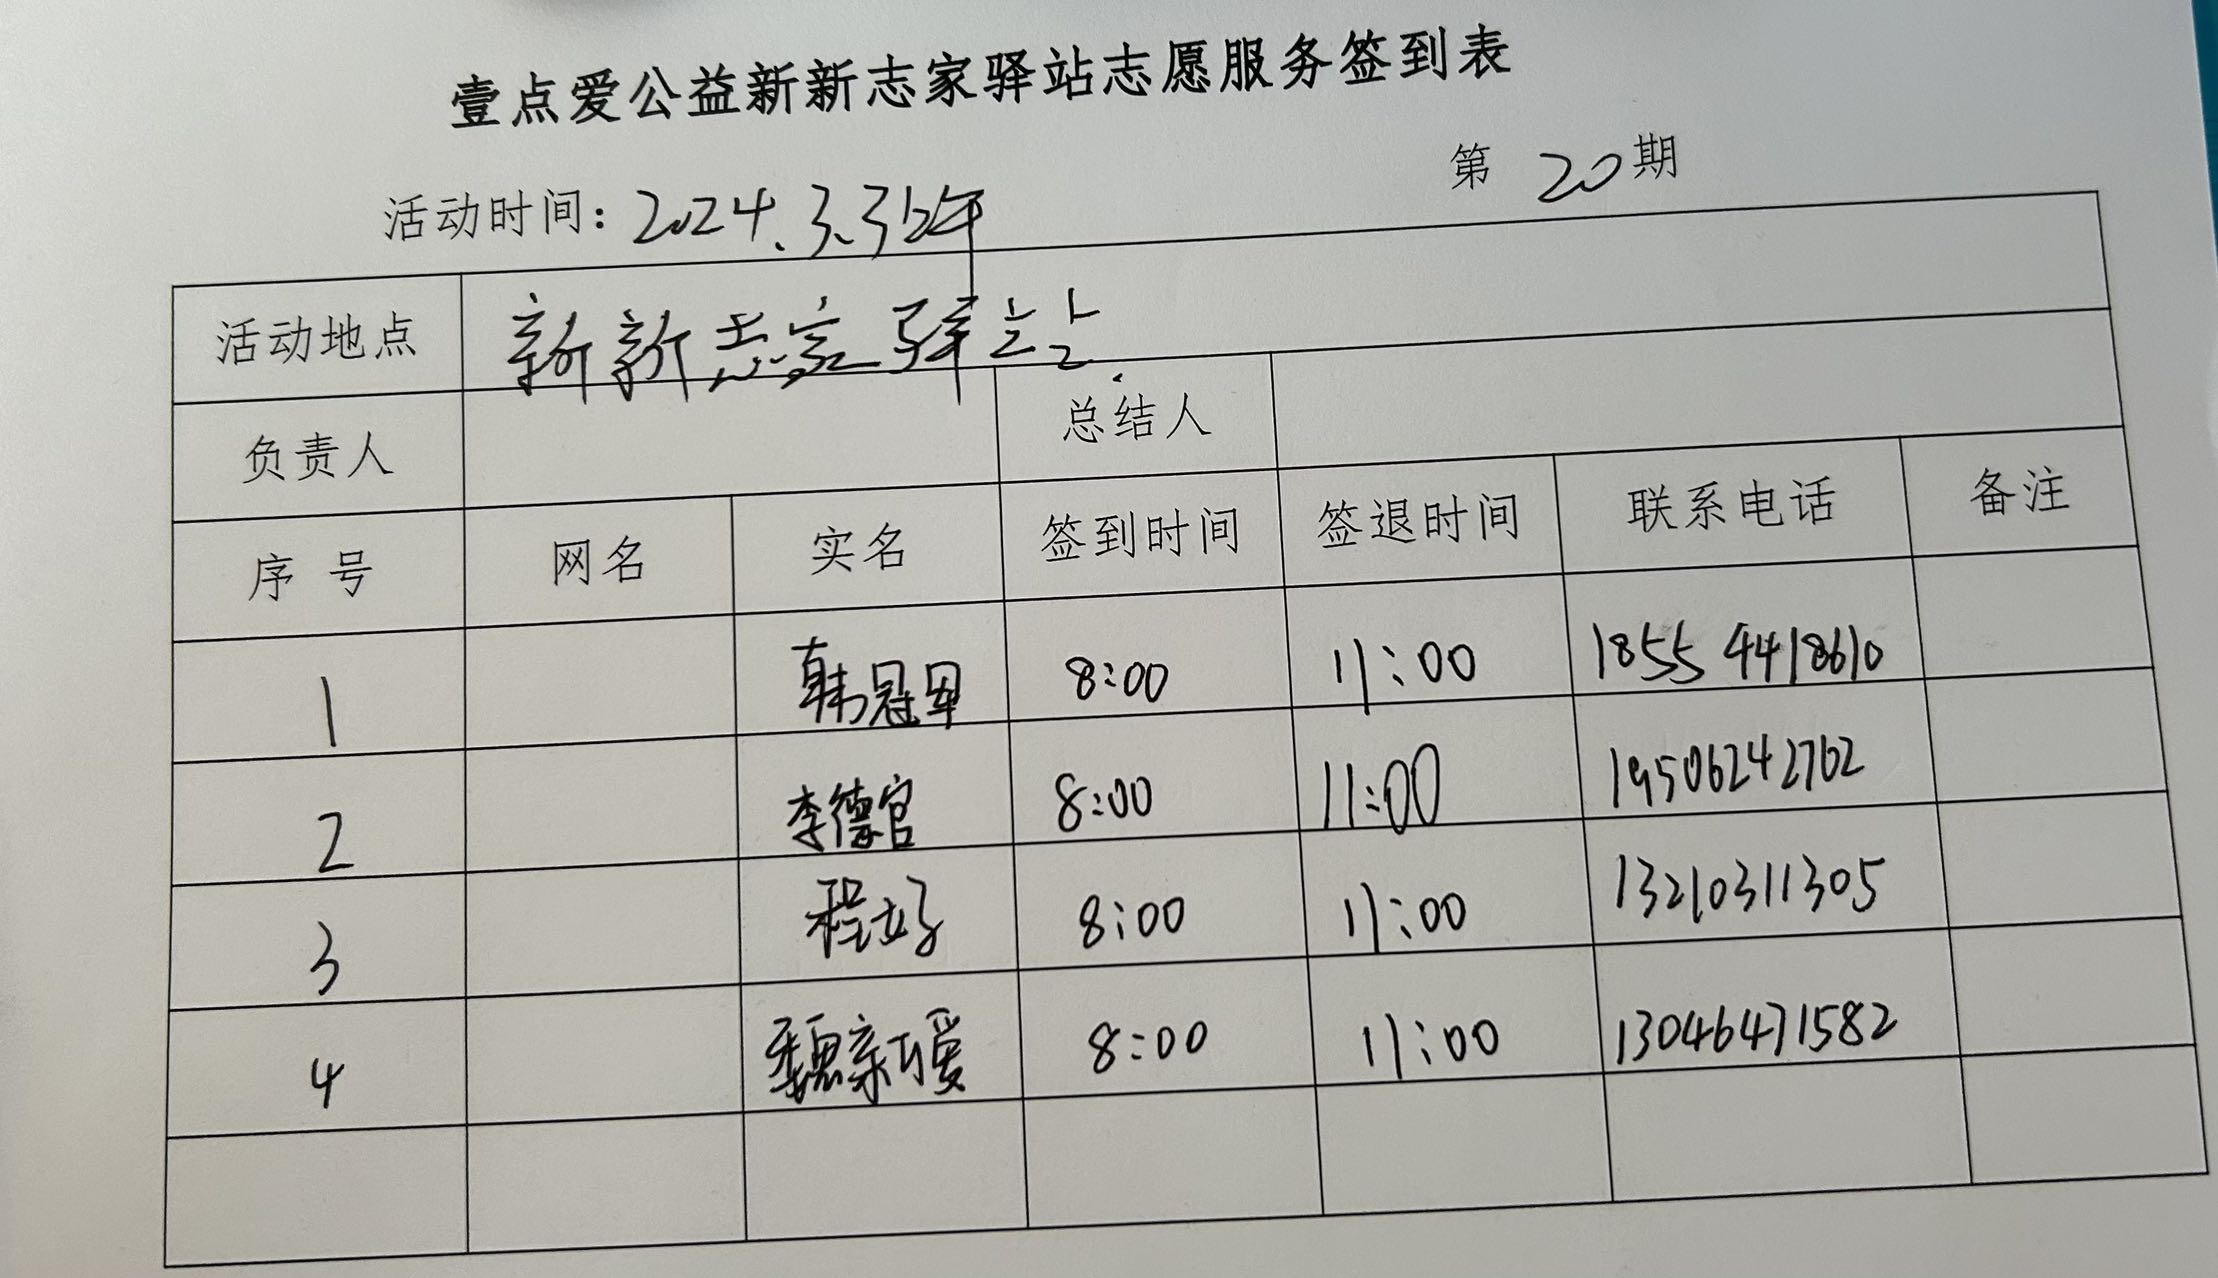 壹点爱公益新新志家驿站志愿服务签到表
第 20 期
活动时间: 2024.3.31上午
活动地点 新新志家驿站
负责人 总结人
序号 网名 实名 签到时间 签退时间 联系电话 备注
1 韩冠军 8:00 11:00 18554418610
2 李德官 8:00 11:00 19506242762
3 程好 8:00 11:00 13210311305
4 魏新爱 8:00 11:00 13046471582